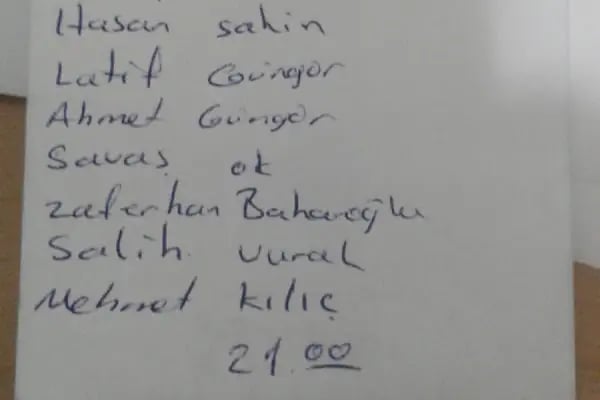 Hasan sahin
Latif Güngör
Ahmet Güngör
Savaş ok
zaferhan Baharoğlu
Salih vural
Mehmet kılıç
21.00